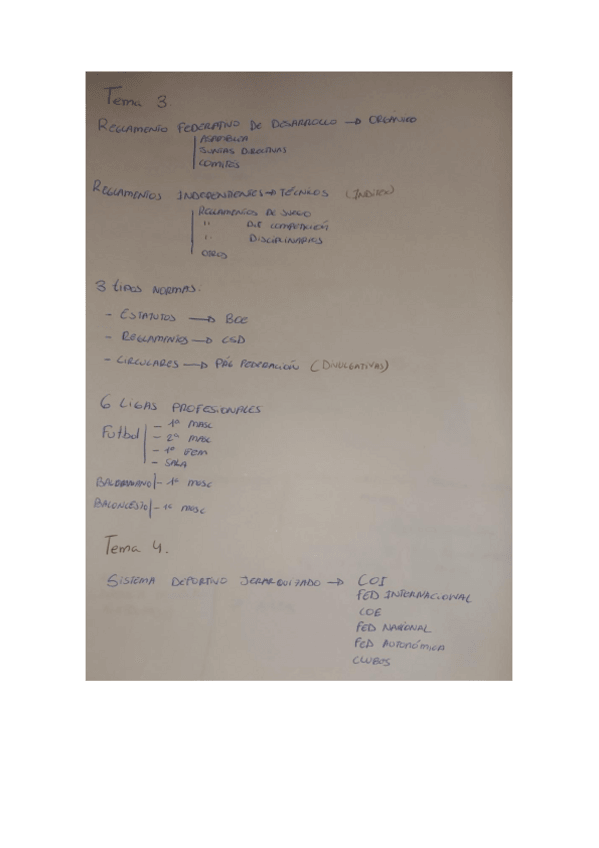 Tema 3.
REGLAMENTO FEDERATIVO DE DESARROLLO → ORGÁNICO
ASAMBLEA
JUNTAS DIRECTIVAS
COMITÉS
REGLAMENTOS INDEPENDIENTES → TÉCNICOS
REGLAMENTOS DE JUEGO
" DE COMPETICIÓN
" DISCIPLINARIOS
OTROS
3 tipos NORMAS:
- ESTATUTOS → BOE
- REGLAMENTOS → CSD
- CIRCULARES → PÁG FEDERACIÓN (DIVULGATIVAS)
6 LIGAS PROFESIONALES
Futbol - 1ª MASC
- 2ª MASC
- 1ª FEM
- SALA
BALONMANO - 1ª MASC
BALONCESTO - 1ª MASC
Tema 4.
SISTEMA DEPORTIVO JERARQUIZADO → COI
FED INTERNACIONAL
COE
FED NACIONAL
FED AUTONÓMICA
CLUBES